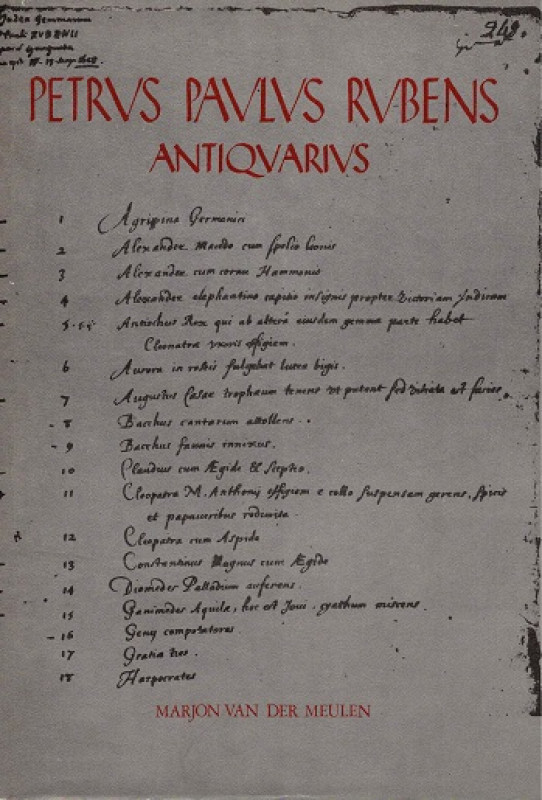 Index Gemmarum
249.
PETRVS PAVLVS RVBENS
ANTIQVARIVS
1 Agrippina Germanici
2 Alexander Macedo cum spolio leonis
3 Alexander cum cornu Hammonis
4 Alexander elephantino capitio insignis propter Victoriam Indicam
5 Antiochus Rex qui ab altera eiusdem gemmæ parte habet
Cleopatra uxoris effigiem.
6 Aurora in roseis fulgebat lutea bigis.
7 Augustus Cæsar trophæum tenens ut putant sed vitiata est facies.
8 Bacchus cantarum attollens.
9 Bacchus faunis innixus.
10 Claudius cum Ægide & sceptro.
11 Cleopatra M. Anthonij effigiem e collo suspensam gerens, spicis
et papaveribus redimita.
12 Cleopatra cum Aspide
13 Constantinus Magnus cum Ægide
14 Diomedes Palladium auferens.
15 Ganimedes Aquilæ, hoc est Joui, cyathum miscens.
16 Genij compotatores.
17 Gratiæ tres.
18 Harpocrates
MARJON VAN DER MEULEN